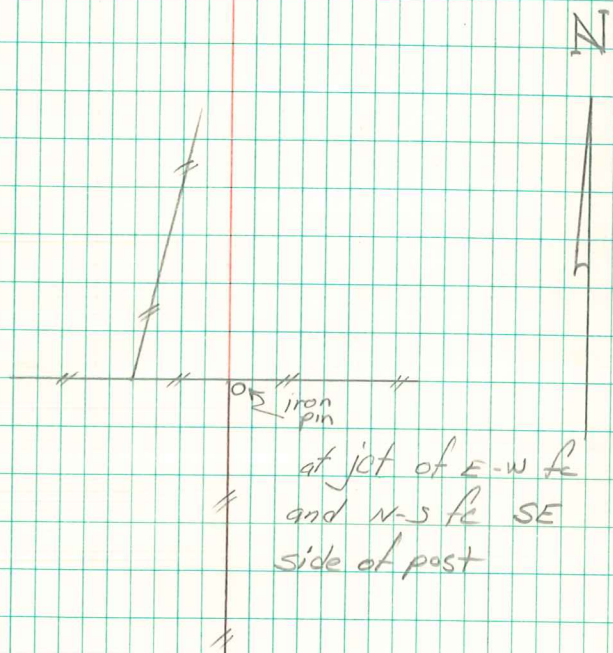 N
iron
pin
at jct of E-W fc
and N-S fc SE
side of post